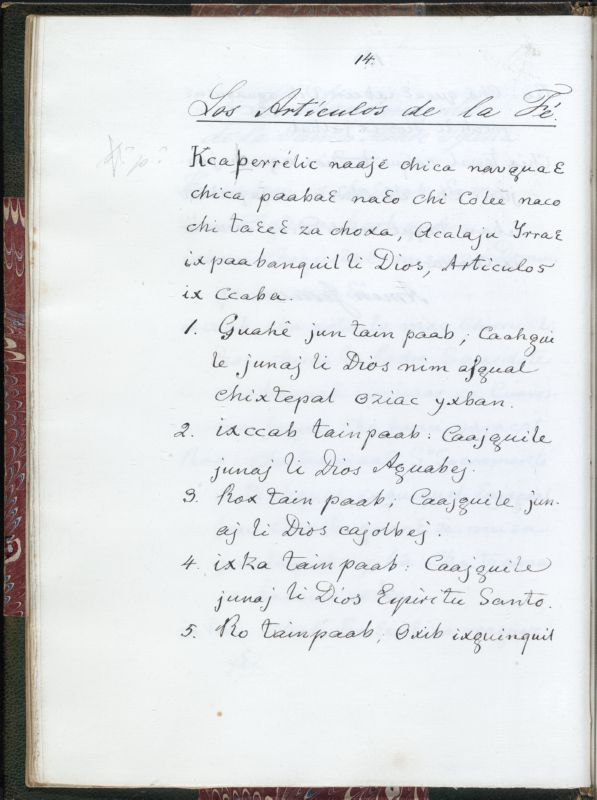 14.
Los Articulos de la Fé.
Kcaperrélic naajɛ chica navquaɛ
chica paabaɛ naɛo chi Coleɛ̄ naco
chi taɛeɛ za choxa, Acalaju Yrraɛ
ixpaabanquil li Dios, Articulos
ix Ccaba.
1. Guahê jun tain paab; Caahqui
le junaj li Dios nim ajgual
chixtepal oziac yxban.
2. ixccab tainpaab: Caajquile
junaj li Dios Aguabej.
3. Rox tain paab; Caajquile jun-
aj li Dios cajolbej.
4. ixka tainpaab: Caajquile
junaj li Dios Espiritu Santo.
5. Ro tainpaab; Oxib ixquinquil